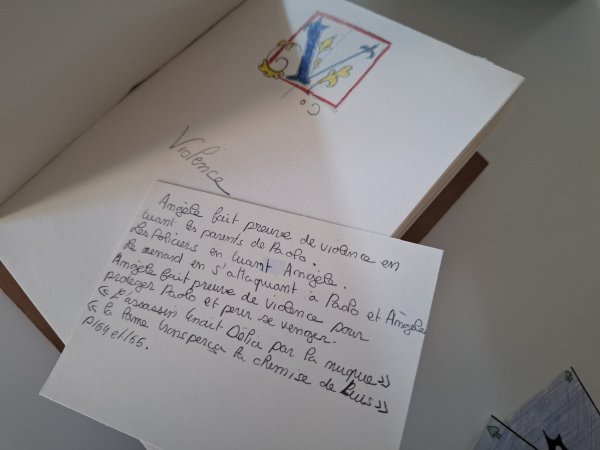 V
Violence
Angèle fait preuve de violence en
tuant les parents de Paolo.
Les Policiers en tuant Angèle.
Le renard en s'attaquant à Paolo et Angèle
Angèle fait preuve de violence pour
protéger Paolo et pour se venger.
« l'assassin tenait Délia par la nuque »
« la lame transperça la chemise de Luis »
P164 et 166.